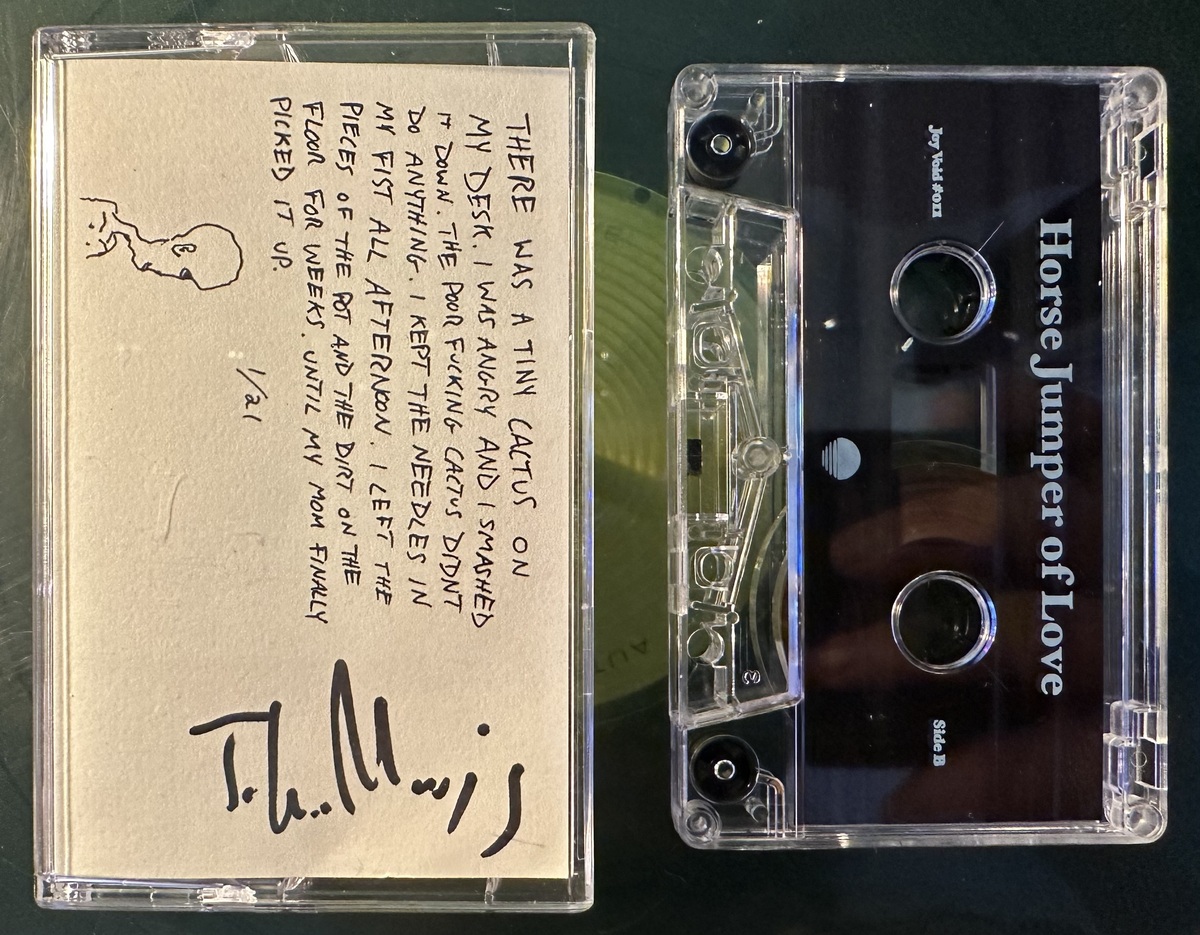 THERE WAS A TINY CACTUS ON
MY DESK. I WAS ANGRY AND I SMASHED
IT DOWN. THE POOR FUCKING CACTUS DIDNT
DO ANYTHING. I KEPT THE NEEDLES IN
MY FIST ALL AFTERNOON. I LEFT THE
PIECES OF THE POT AND THE DIRT ON THE
FLOOR FOR WEEKS. UNTIL MY MOM FINALLY
PICKED IT UP.
1/21
Horse Jumper of Love
Joy Void #011
Side B